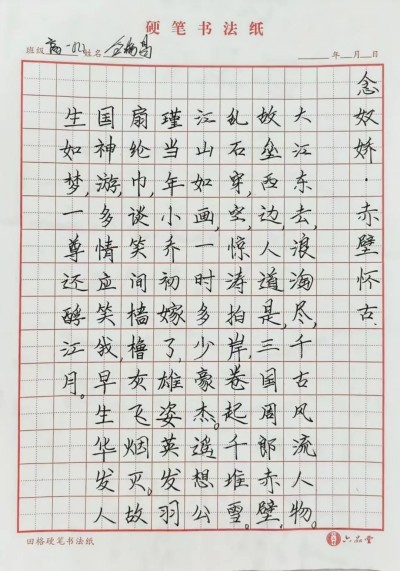 硬笔书法纸
班级 高一 姓名
年 月 日
念奴娇·赤壁怀古.
大江东去,浪淘尽,千古风流人物。
故垒西边,人道是,三国周郎赤壁。
乱石穿空,惊涛拍岸,卷起千堆雪。
江山如画,一时多少豪杰。遥想公
瑾当年,小乔初嫁了,雄姿英发。羽
扇纶巾,谈笑间樯橹灰飞烟灭。故
国神游,多情应笑我,早生华发人
生如梦,一尊还酹江月。
田格硬笔书法纸
六品堂